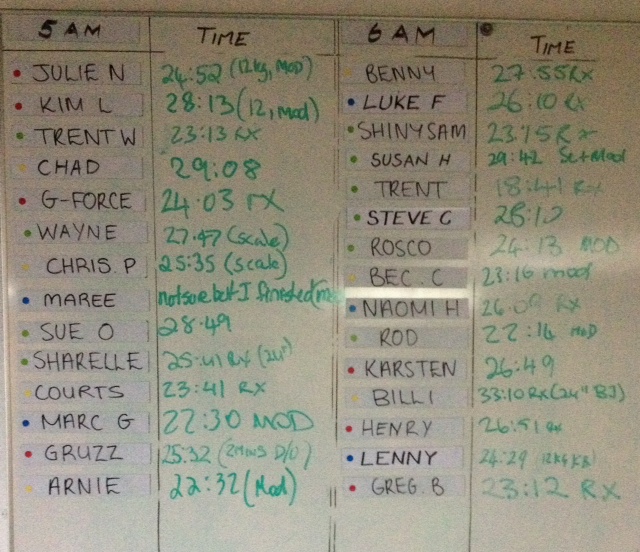 5 AM TIME
JULIE N 24:52 (12kg, MOD)
KIM L 28:13 (12, Mod)
TRENT W 23:13 RX
CHAD 29:08
G-FORCE 24:03 rx
WAYNE 27:47 (scale)
CHRIS. P 25:35 (scale)
MAREE but I finished
SUE O 28:49
SHARELLE 25:41 RX (24")
COURTS 23:41 RX
MARC G 22:30 MOD
GRUZZ 25:32 (2MINS D/U)
ARNIE 22:32 (Mod)
6 AM TIME
BENNY 27:55 RX
LUKE F 26:10 RX
SHINYSAM 23:15 Rx
SUSAN H 29:42 Mod
TRENT 18:41 Rx
STEVE C 28:12
ROSCO 24:13 MOD
BEC. C 23:16 mod
NAOMI H 26:09 RX
ROD 22:14 MOD
KARSTEN 26:49
BILLI 33:10 RX (24" BJ)
HENRY 26:51 RX
LENNY 24:29
GREG. B 23:12 RX